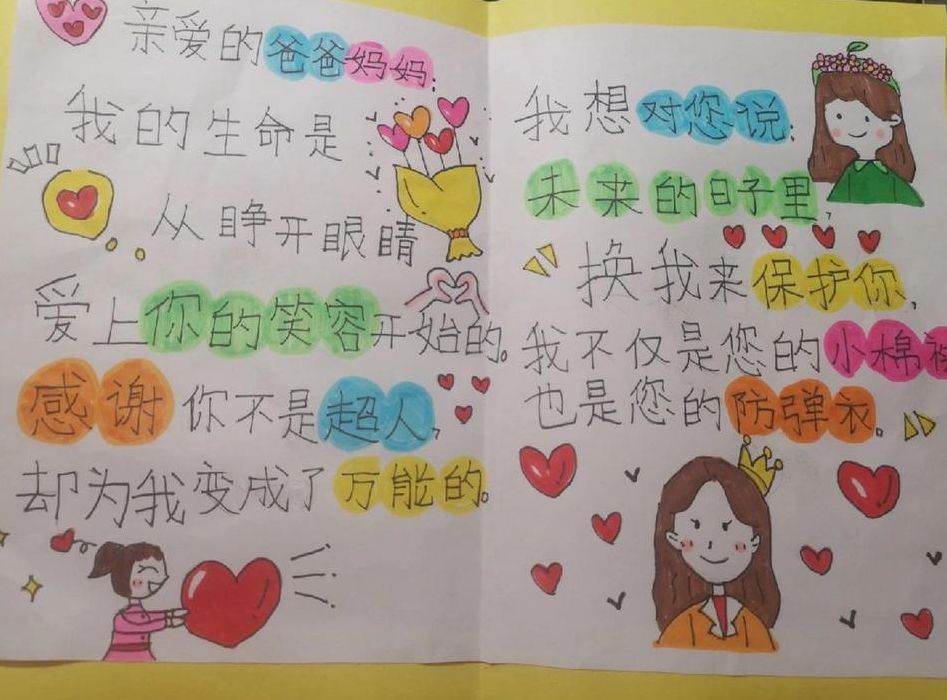 亲爱的爸爸妈妈:
我的生命是
从睁开眼睛
爱上你的笑容开始的。
感谢你不是超人,
却为我变成了万能的。
我想对您说:
未来的日子里,
换我来保护你,
我不仅是您的小棉袄
也是您的防弹衣。